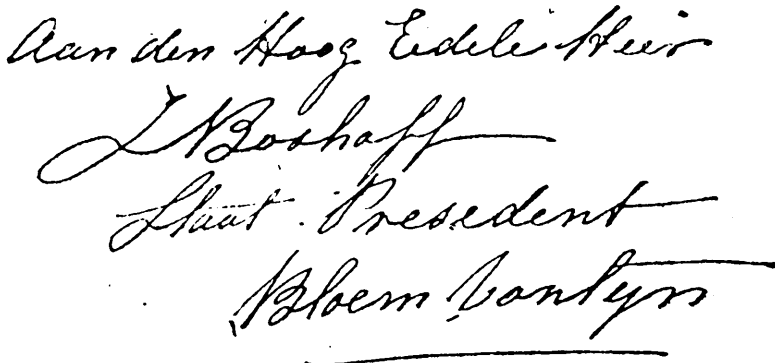 Aan den Hoog Edele Heer
J N Boshoff
Staat. President
Bloem Vontyn